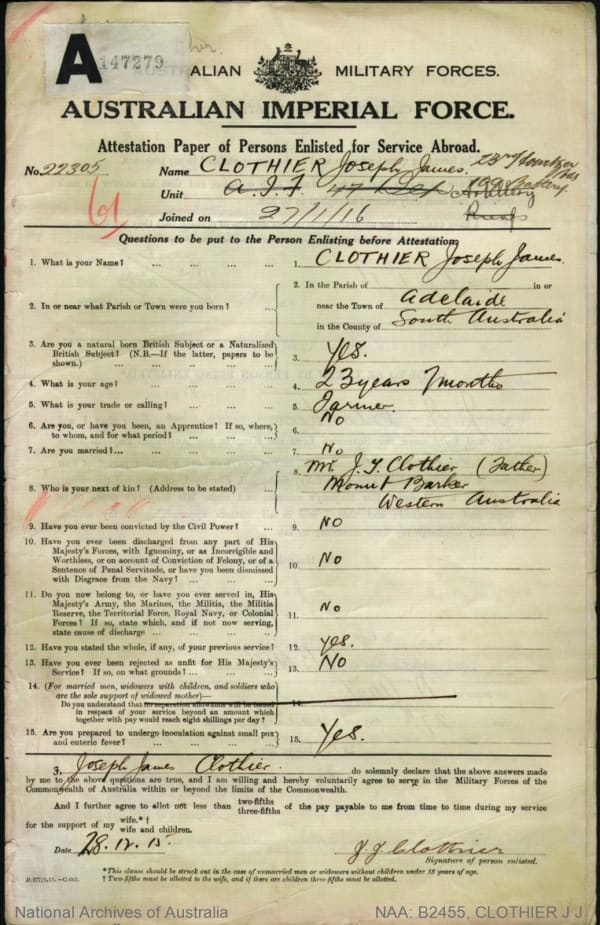 A 147279
AUSTRALIAN MILITARY FORCES.
AUSTRALIAN IMPERIAL FORCE.
Attestation Paper of Persons Enlisted for Service Abroad.
No. 22305 Name CLOTHIER Joseph James. 23rd Howitzer
Unit A.I.F 47 Dep Artillery 109 Battery.
Joined on 27/1/16 Reinfs
61
Questions to be put to the Person Enlisting before Attestation.
1. What is your Name? ... ... ... ... 1. CLOTHIER Joseph James.
2. In or near what Parish or Town were you born? ... 2. In the Parish of in or
near the Town of Adelaide
in the County of South Australia
3. Are you a natural born British Subject or a Naturalized
British Subject? (N.B.—If the latter, papers to be
shown.) ... ... ... ... 3. Yes.
4. What is your age? ... ... ... ... 4. 23 years 7 months
5. What is your trade or calling? ... ... ... 5. Farmer.
6. Are you, or have you been, an Apprentice? If so, where,
to whom, and for what period? ... ... ... 6. No
7. Are you married? ... ... ... ... 7. No
8. Who is your next of kin? (Address to be stated) ... 8. Mr. J. T. Clothier (Father)
Mount Barker
Western Australia
9. Have you ever been convicted by the Civil Power? ... 9. No
10. Have you ever been discharged from any part of His
Majesty's Forces, with Ignominy, or as Incorrigible and
Worthless, or on account of Conviction of Felony, or of a
Sentence of Penal Servitude, or have you been dismissed
with Disgrace from the Navy? ... ... ... 10. No
11. Do you now belong to, or have you ever served in, His
Majesty's Army, the Marines, the Militia, the Militia
Reserve, the Territorial Force, Royal Navy, or Colonial
Forces? If so, state which, and if not now serving,
state cause of discharge ... ... ... 11. No
12. Have you stated the whole, if any, of your previous service? 12. Yes.
13. Have you ever been rejected as unfit for His Majesty's
Service? If so, on what grounds? ... ... 13. No
14. (For married men, widowers with children, and soldiers who
are the sole support of widowed mother)—
Do you understand that no separation allowance will be issued
in respect of your service beyond an amount which
together with pay would reach eight shillings per day? 14.
15. Are you prepared to undergo inoculation against small pox
and enteric fever? ... ... ... ... 15. Yes.
I, Joseph James Clothier. do solemnly declare that the above answers made
by me to the above questions are true, and I am willing and hereby voluntarily agree to serve in the Military Forces of the
Commonwealth of Australia within or beyond the limits of the Commonwealth.
And I further agree to allot not less than two-fifths three-fifths of the pay payable to me from time to time during my service
for the support of my wife.*† wife and children.
Date 28.12.15. J J Clothier
Signature of person enlisted.
*This clause should be struck out in the case of unmarried men or widowers without children under 18 years of age.
† Two-fifths must be allotted to the wife, and if there are children three-fifths must be allotted.
National Archives of Australia NAA: B2455, CLOTHIER J J